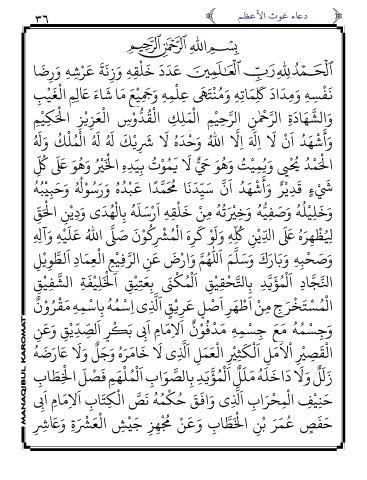 ٣٦
دعاء غوث الأعظم
بِسْمِ اللهِ الرَّحْمٰنِ الرَّحِيْمِ
اَلْحَمْدُ لِلّٰهِ رَبِّ الْعَالَمِينَ عَدَدَ خَلْقِهِ وَزِنَةَ عَرْشِهِ وَرِضَا
نَفْسِهِ وَمِدَادَ كَلِمَاتِهِ وَمُنْتَهَى عِلْمِهِ وَجَمِيْعَ مَا شَاءَ عَالِمِ الْغَيْبِ
وَالشَّهَادَةِ الرَّحْمٰنِ الرَّحِيْمِ الْمَلِكِ الْقُدُّوْسِ الْعَزِيْزِ الْحَكِيْمِ
وَأَشْهَدُ اَنْ لَا اِلٰهَ اِلَّا اللهُ وَحْدَهُ لَا شَرِيْكَ لَهُ لَهُ الْمُلْكُ وَلَهُ
الْحَمْدُ يُحْيِى وَيُمِيْتُ وَهُوَ حَيٌّ لَا يَمُوْتُ بِيَدِهِ الْخَيْرُ وَهُوَ عَلَى كُلِّ
شَيْءٍ قَدِيْرٌ وَأَشْهَدُ اَنَّ سَيِّدَنَا مُحَمَّدًا عَبْدُهُ وَرَسُوْلُهُ وَحَبِيْبُهُ
وَخَلِيْلُهُ وَصَفِيُّهُ وَخِيْرَتُهُ مِنْ خَلْقِهِ اَرْسَلَهُ بِالْهُدَى وَدِيْنِ الْحَقِّ
لِيُظْهِرَهُ عَلَى الدِّيْنِ كُلِّهِ وَلَوْ كَرِهَ الْمُشْرِكُوْنَ صَلَّى اللهُ عَلَيْهِ وَآلِهِ
وَصَحْبِهِ وَبَارَكَ وَسَلَّمَ اَللّٰهُمَّ وَارْضَ عَنِ الرَّفِيْعِ الْعِمَادِ الطَّوِيْلِ
النِّجَادِ الْمُؤَيَّدِ بِالتَّحْقِيْقِ الْمُكْنَى بِعَتِيْقٍ الْخَلِيْفَةِ الشَّفِيْقِ
الْمُسْتَخْرَجِ مِنْ اَطْهَرِ اَصْلٍ عَرِيْقٍ الَّذِى اِسْمُهُ بِاسْمِهِ مَقْرُوْنٌ
وَجِسْمُهُ مَعَ جِسْمِهِ مَدْفُوْنٌ اَلْاِمَامِ اَبِى بَكْرٍ الصِّدِّيْقِ وَعَنِ
الْقَصِيْرِ الْاَمَلِ الْكَثِيْرِ الْعَمَلِ الَّذِى لَا خَامَرَهُ وَجَلٌ وَلَا عَارَضَهُ
زَلَلٌ وَلَا دَاخَلَهُ مَلَلٌ الْمُؤَيَّدِ بِالصَّوَابِ الْمُلْهَمِ فَصْلَ الْخِطَابِ
حَنِيْفِ الْمِحْرَابِ الَّذِى وَافَقَ حُكْمُهُ نَصَّ الْكِتَابِ الْاِمَامِ اَبِى
حَفْصٍ عُمَرَ بْنِ الْخَطَّابِ وَعَنْ مُجَهِّزِ جَيْشِ الْعُسْرَةِ وَعَاشِرِ
MANAQIBUL KAROMAT